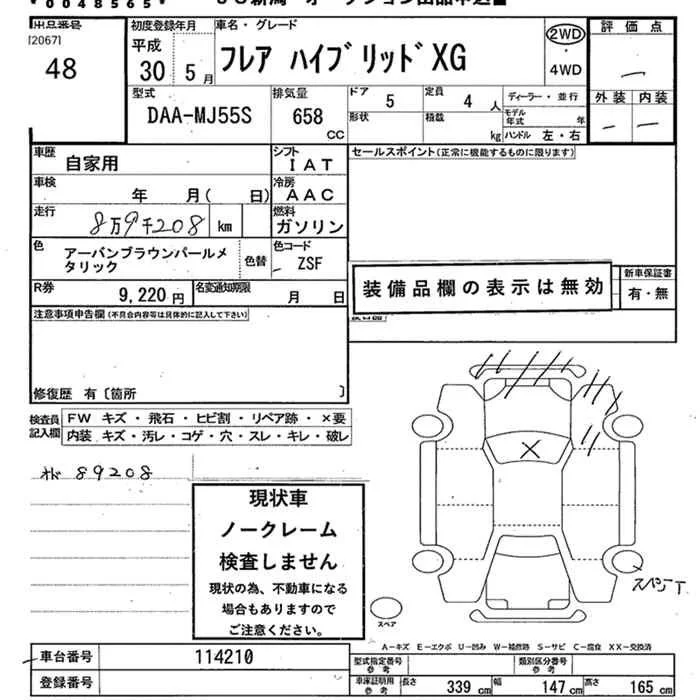 0048565
出品番号
[2067]
48
初度登録年月
平成
30 5月
車名・グレード
フレア ハイブリッドXG
2WD
4WD
評価点
―
外装 内装
― ―
型式
DAA-MJ55S
排気量
658
CC
ドア
5
定員
4 人
形状
積載
kg
ディーラー・並行
モデル年式 年
ハンドル 左・右
車歴
自家用
シフト
IAT
セールスポイント(正常に機能するものに限ります)
車検
年 月( 日)
冷房
AAC
走行
8万9千208 km
燃料
ガソリン
色
アーバンブラウンパールメタリック
色替
色コード
ZSF
R券
9,220円
名変通知期限
月 日
装備品欄の表示は無効
新車保証書
有・無
注意事項申告欄(不具合内容等は具体的に記入して下さい)
修復歴 有〔箇所 〕
検査員記入欄
FW キズ・飛石・ヒビ割・リペア跡・×要
内装 キズ・汚レ・コゲ・穴・スレ・キレ・破レ
オド 89208
現状車
ノークレーム
検査しません
現状の為、不動車になる
場合もありますので
ご注意ください。
スペア
スペシT
A-キズ E-エクボ U-凹み W-補修跡 S-サビ C-腐食 XX-交換済
車台番号
114210
登録番号
型式指定番号
参考
類別区分番号
参考
車庫証明用
参考
長さ 339 cm
幅 147 cm
高さ 165 cm